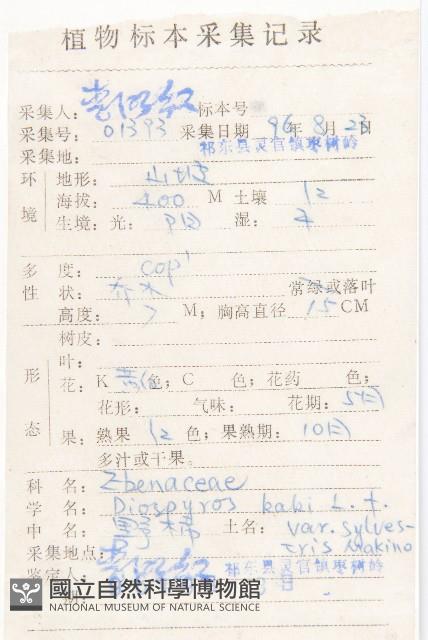 植物标本采集记录
采集人： 标本号
采集号： 01393 采集日期 96年 8月 23日
采集地： 祁东县灵官镇枣树岭
环 地形： 山坡
海拔： 400 M 土壤 红
境 生境：光： 阳 湿： 干
多 度： cop1
性 状： 乔木 常绿或落叶
高度： 7 M；胸高直径 15 CM
树皮：
形 叶：
花： K 黄色；C 色；花药 色；
花形： 气味： 花期： 5月
态 果：熟果 红 色；果熟期： 10月
多汁或干果。
科 名： Zbenaceae
学 名： Diospyros kaki L.f.
中 名： 野柿 土名： var. sylves-
采集地点： tris Makino
鉴定人： 祁东县灵官镇枣树岭
國立自然科學博物館
NATIONAL MUSEUM OF NATURAL SCIENCE